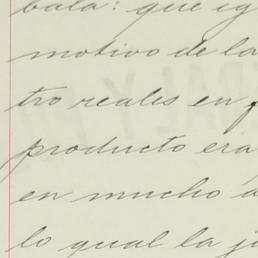 bala: que ig
motivo de la
tro reales en f
producto era
en mucho a
lo qual la j